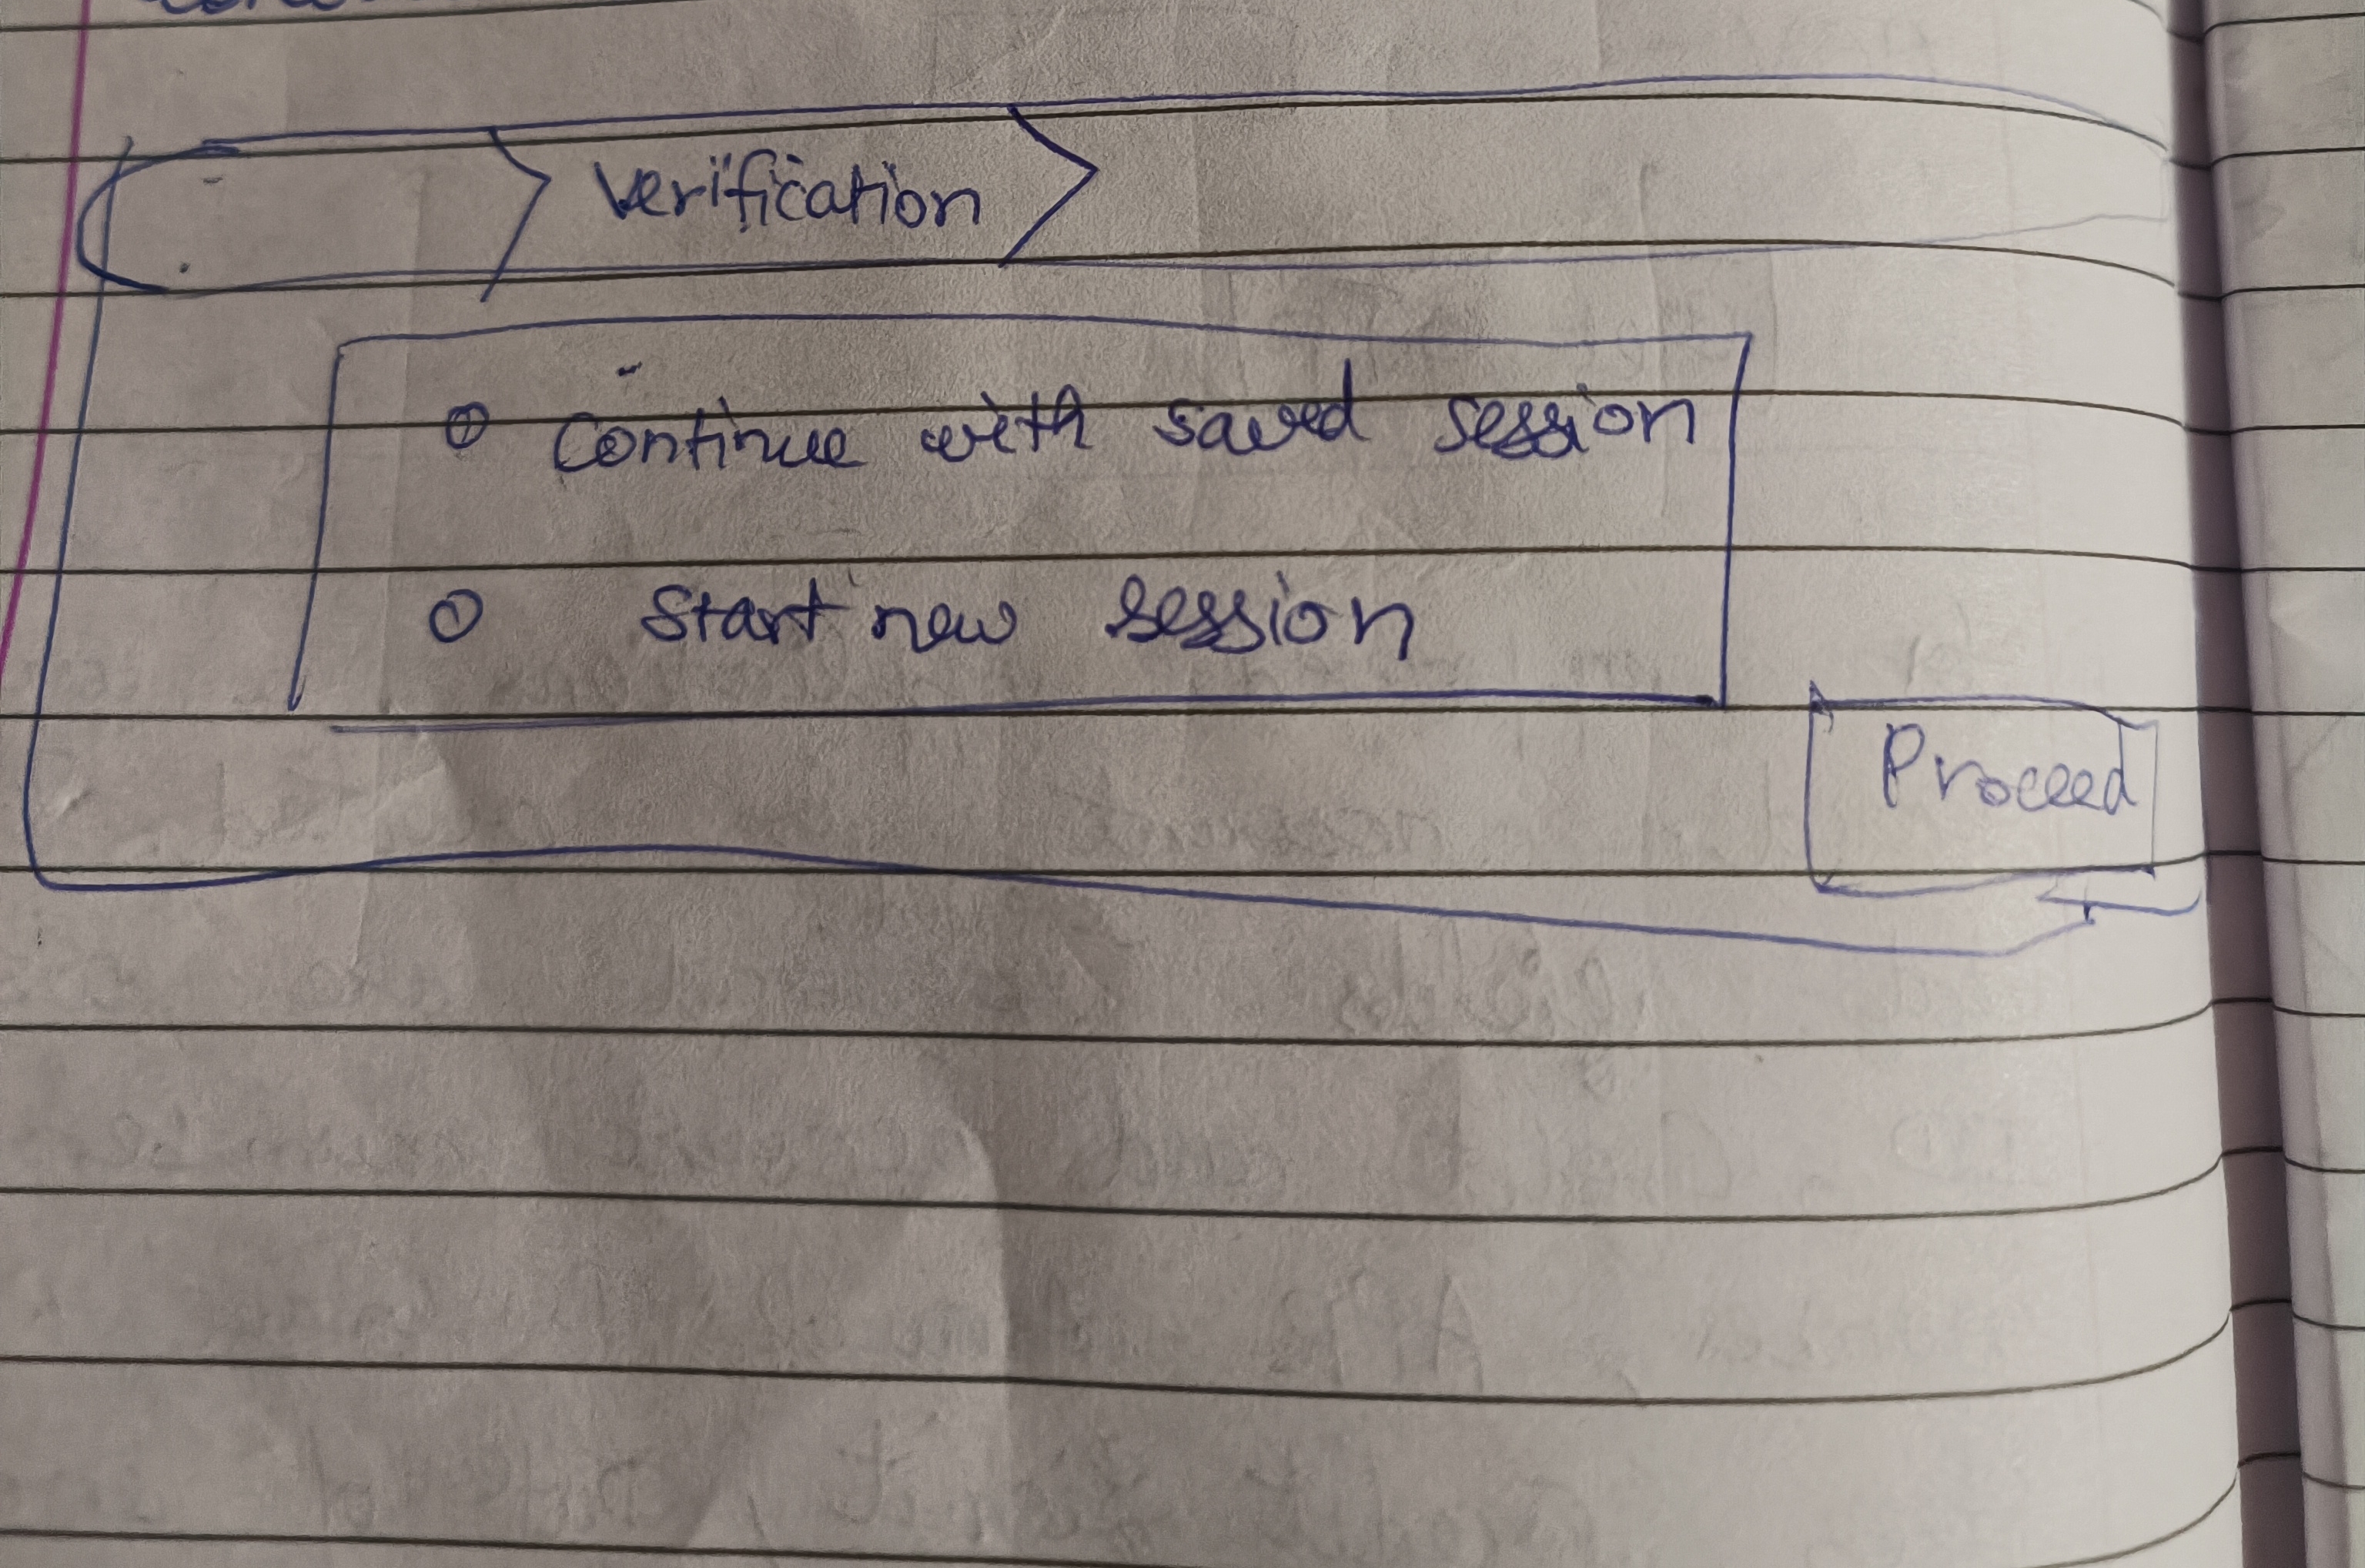 Verification
Continue with saved session
Start new session
Proceed